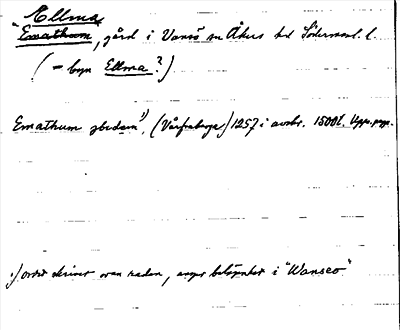 Ellma
"Emathum, gård i Vansö sn Åkers hd Söderml. l.
(= byn Ellma?)
Emathum ibidem 1), (Vårfruberga) 1257 i avskr. 1500t. Upps. papp.
1) ordet skrivet ovan raden, anger belägenhet i "Wanseo"